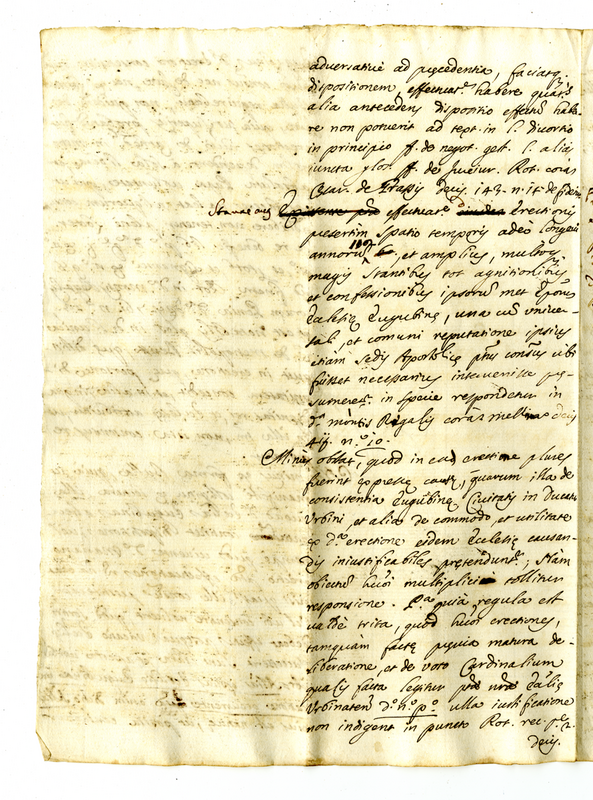 adversativè ad pręcedentia, faciatq,
dispositionem, effectuat.ᵉ habere quat.s
alia antecedens dispositio effectũ habe-
re non potuerit ad text. in l. divortio
in principio ff. de negot. gest. l. alias
iuncta glos. ff. de Iureiur. Rot. coram
Cesar. de Grassis decis. 143. n. 15 de fideiu
effectuat.ᵉ Erectionis
presertim spatio temporis adeo longevi
annorũ 1107, et amplius, multoq,
magis stantibus tot agnitionibus
et confessionibus ipsorũ met Epõrũ
Ecclesię Eugubinę, una cũ univer-
sali, et comuni reputatione ipsius
etiam Sedis Apostolicę, cuius consensus ubi
fuisset necessarius intervenisse prę-
sumeret.ʳ in specie respondetur in
d.ᵃ montis Regalis coram decis
n.º 10.
Minus obstat, quod in eadem erectione plures
fuerint expressę causę, quarum illa de
consistentia Eugubinę Civitatis in Ducatu
Urbini, et alia de commodo, et utilitate
ex d.ᵃ erectione eidem Ecclesię causan-
dis iniustificabiles pretendunt.ʳ; Nam
obiectũ huiõi multiplici tollitur
responsione. P.ᵃ quia regula est
valdè trita, quod huiõi erectiones,
tamquam factę pręvia matura de-
liberatione, et de voto Cardinalium
qualis facta legitur
Urbinaten d.º n.º p.º ulla iustificatione
non indigent in puncto Rot. rec. p.ᵉ 2.
decis.